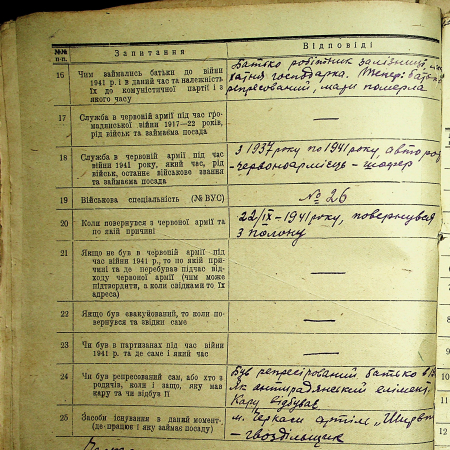 №№ п.п.
Запитання
Відповіді
16
Чим займались батьки до війни
1941 р. і в даний час та належність
їх до комуністичної партії і з
якого часу
Батько робітник залізниці, мати
хатня господарка. Тепер: батько
репресований, мати померла
17
Служба в червоній армії під час гро-
мадянської війни 1917—22 років,
рід військ та займаєма посада
—
18
Служба в червоній армії під час
війни 1941 року, який час, рід
військ, останнє військове звання
та займаєма посада
з 1937 року по 1941 року, авто рота
-червоноармієць - шофер
19
Військова спеціальність (№ ВУС)
№ 26
20
Коли повернувся з червоної армії та
по якій причині
22/IX - 1941 року, повернувся
з полону
21
Якщо не був в червоній армії під
час війни 1941 р., то по якій при-
чині та де перебував підчас від-
ходу червоної армії (чим може
підтвердити, а коли свідками то їх
адреса)
—
22
Якщо був евакуйований, то коли по-
вернувся та звідки саме
—
23
Чи був в партизанах під час війни
1941 р. та де саме і який час
—
24
Чи був репресирован сам, або хто з
родичів, коли і защо, яку мав
кару та чи відбув її
Був репресірований батько
Як антирадянський елімент.
Кару відбував
25
Засоби існування в даний момент,
(де працює і яку займає посаду)
м. Черкаси артіль
- гвоздільщик
10
11
12